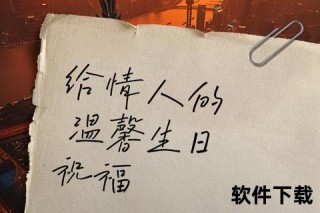 给情人的
温馨生日
祝福
软件下载